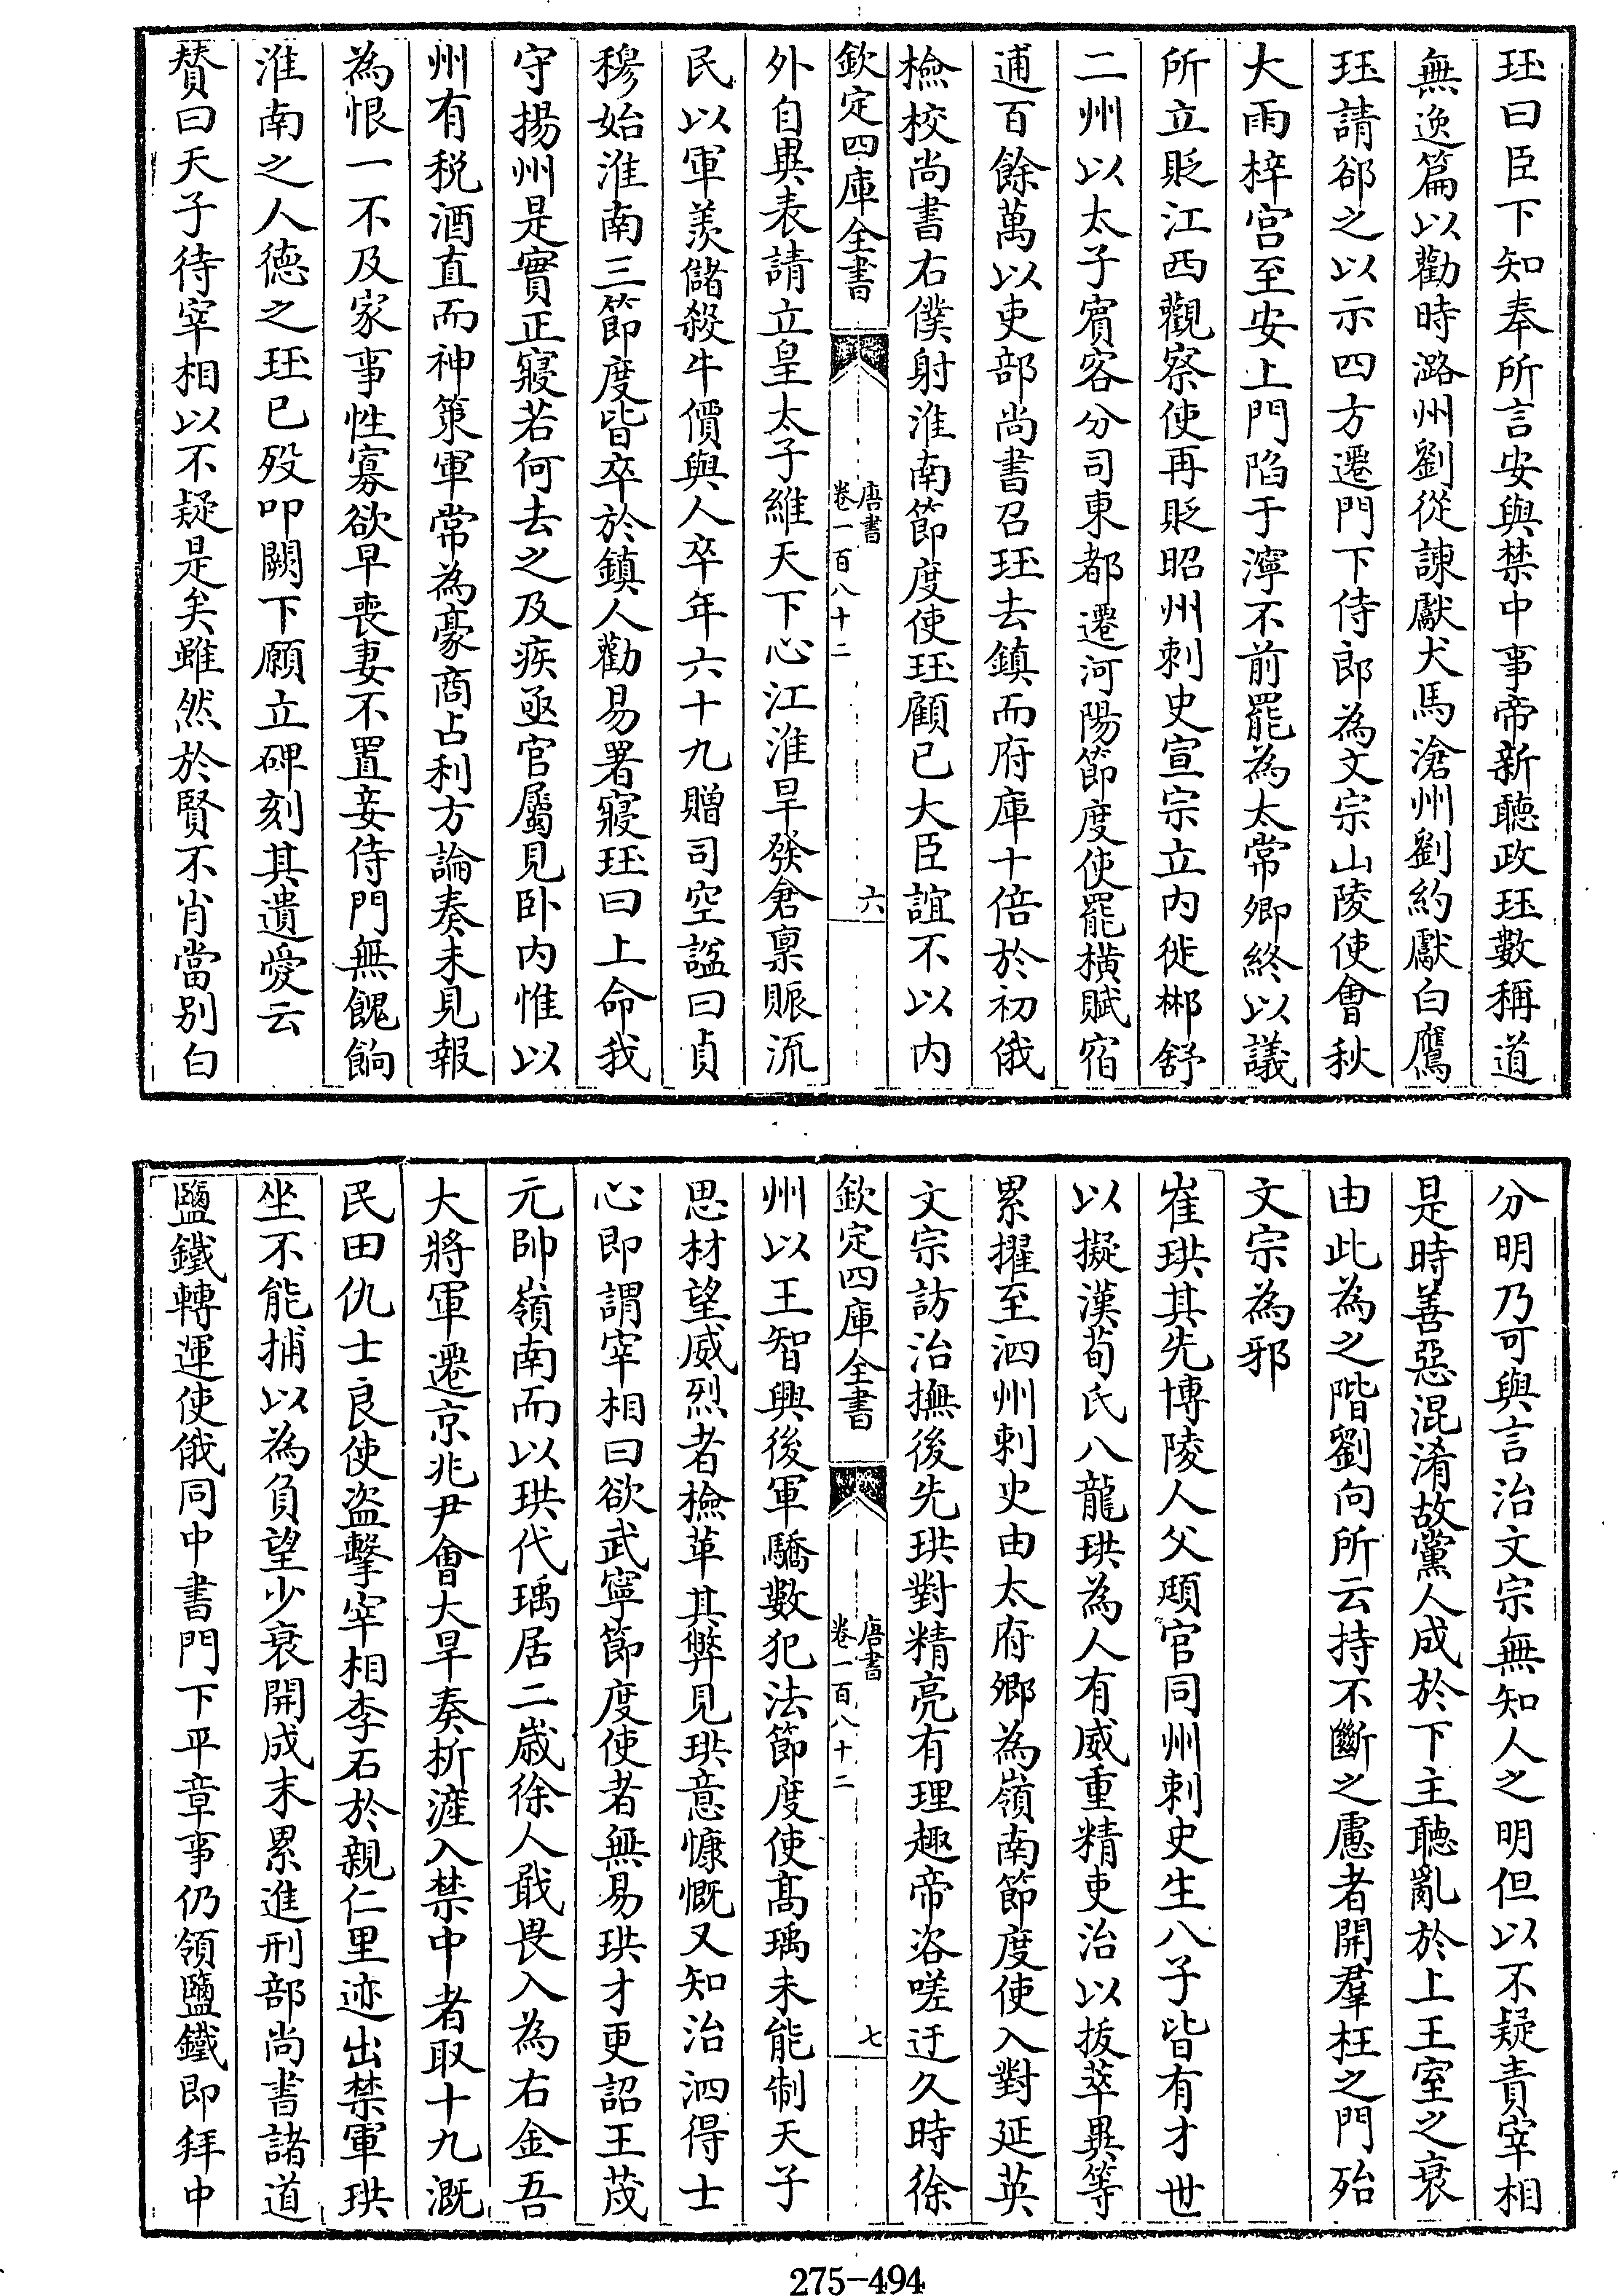 珏曰臣下知奉所言安與禁中事帝新聽政珏數稱道
無逸篇以勸時潞州劉從諫獻犬馬滄州劉約獻白鷹
珏請郤之以示四方遷門下侍郎為文宗山陵使會秋
大雨梓宫至安上門陷于濘不前罷為太常卿終以議
所立貶江西觀察使再貶昭州刺史宣宗立内徙郴舒
二州以太子賓客分司東都遷河陽節度使罷横賦宿
逋百餘萬以吏部尚書召珏去鎮而府庫十倍於初俄
檢校尚書右僕射淮南節度使珏顧已大臣誼不以内
欽定四庫全書
唐書
卷一百八十二
六
外自異表請立皇太子維天下心江淮旱發倉稟賑流
民以軍羨儲殺牛價與人卒年六十九贈司空諡曰貞
穆始淮南三節度皆卒於鎮人勸易署寢珏曰上命我
守揚州是實正寢若何去之及疾亟官屬見卧内惟以
州有税酒直而神策軍常為豪商占利方論奏未見報
為恨一不及家事性寡欲早喪妻不置妾侍門無餽餉
淮南之人德之珏已殁叩闕下願立碑刻其遺愛云
賛曰天子待宰相以不疑是矣雖然於賢不肖當别白
分明乃可與言治文宗無知人之明但以不疑責宰相
是時善惡混淆故黨人成於下主聽亂於上王室之衰
由此為之階劉向所云持不斷之慮者開羣枉之門殆
文宗為邪
崔珙其先博陵人父頲官同州刺史生八子皆有才世
以擬漢荀氏八龍珙為人有威重精吏治以拔萃異等
累擢至泗州刺史由太府卿為嶺南節度使入對延英
文宗訪治撫後先珙對精亮有理趣帝咨嗟迂久時徐
欽定四庫全書
唐書
卷一百八十二
七
州以王智興後軍驕數犯法節度使髙瑀未能制天子
思材望威烈者檢革其弊見珙意慷慨又知治泗得士
心即謂宰相曰欲武寧節度使者無易珙才更詔王茂
元帥嶺南而以珙代瑀居二嵗徐人戢畏入為右金吾
大將軍遷京兆尹會大旱奏析滻入禁中者取十九溉
民田仇士良使盜擊宰相李石於親仁里迹出禁軍珙
坐不能捕以為負望少衰開成末累進刑部尚書諸道
鹽鐵轉運使俄同中書門下平章事仍領鹽鐵即拜中
275-494